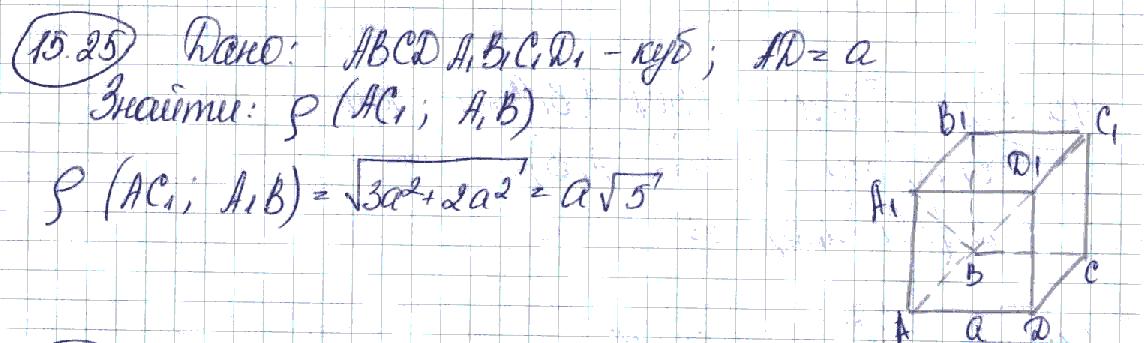 15.25 Дано: ABCDA₁B₁C₁D₁ - куб; AD = a
Знайти: ρ (AC₁; A₁B)
ρ (AC₁; A₁B) = √3a²+2a² = a√5
B₁ C₁
D₁
A₁
B C
A a D